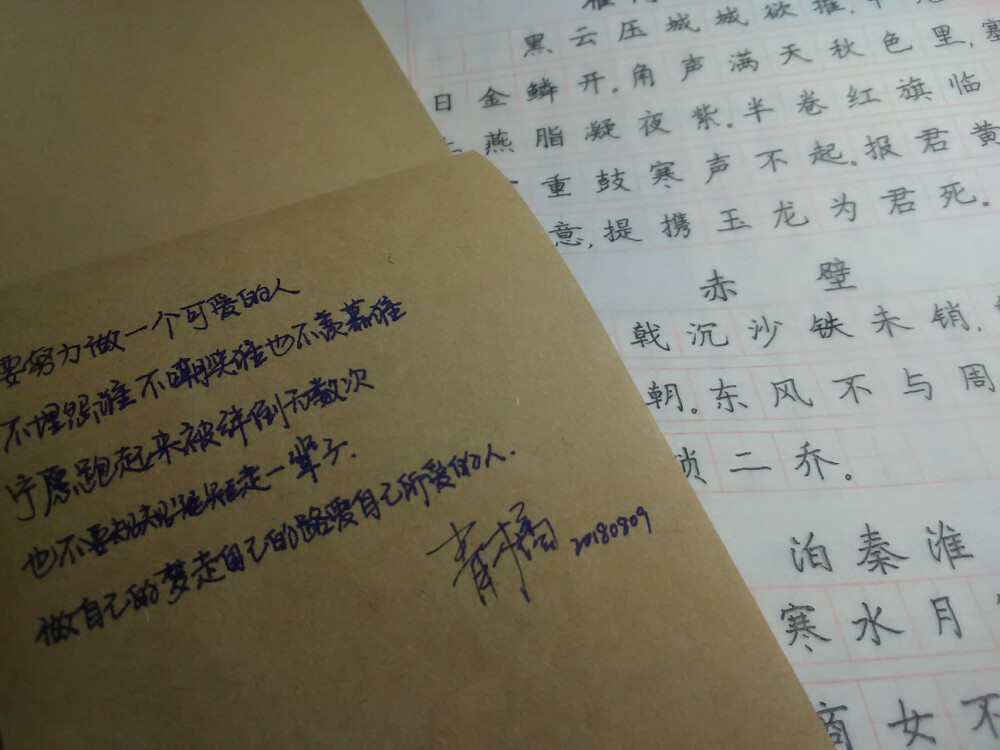 要努力做一个可爱的人
不埋怨谁不嘲笑谁也不羡慕谁
宁愿跑起来被绊倒无数次
也不要规规矩矩走一辈子.
做自己的梦走自己的路爱自己所爱的人.
20180809
黑云压城城欲摧,
日金鳞开。角声满天秋色里,塞
燕脂凝夜紫。半卷红旗临
重鼓寒声不起。报君黄
意,提携玉龙为君死。
赤壁
戟沉沙铁未销,
朝。东风不与周
锁二乔。
泊秦淮
寒水月
商女不